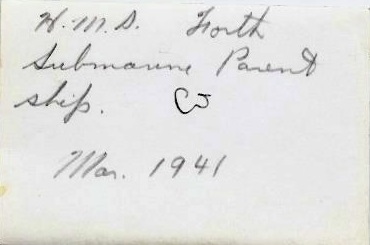 H.M.S. Forth
Submarine Parent
ship.
Mar. 1941